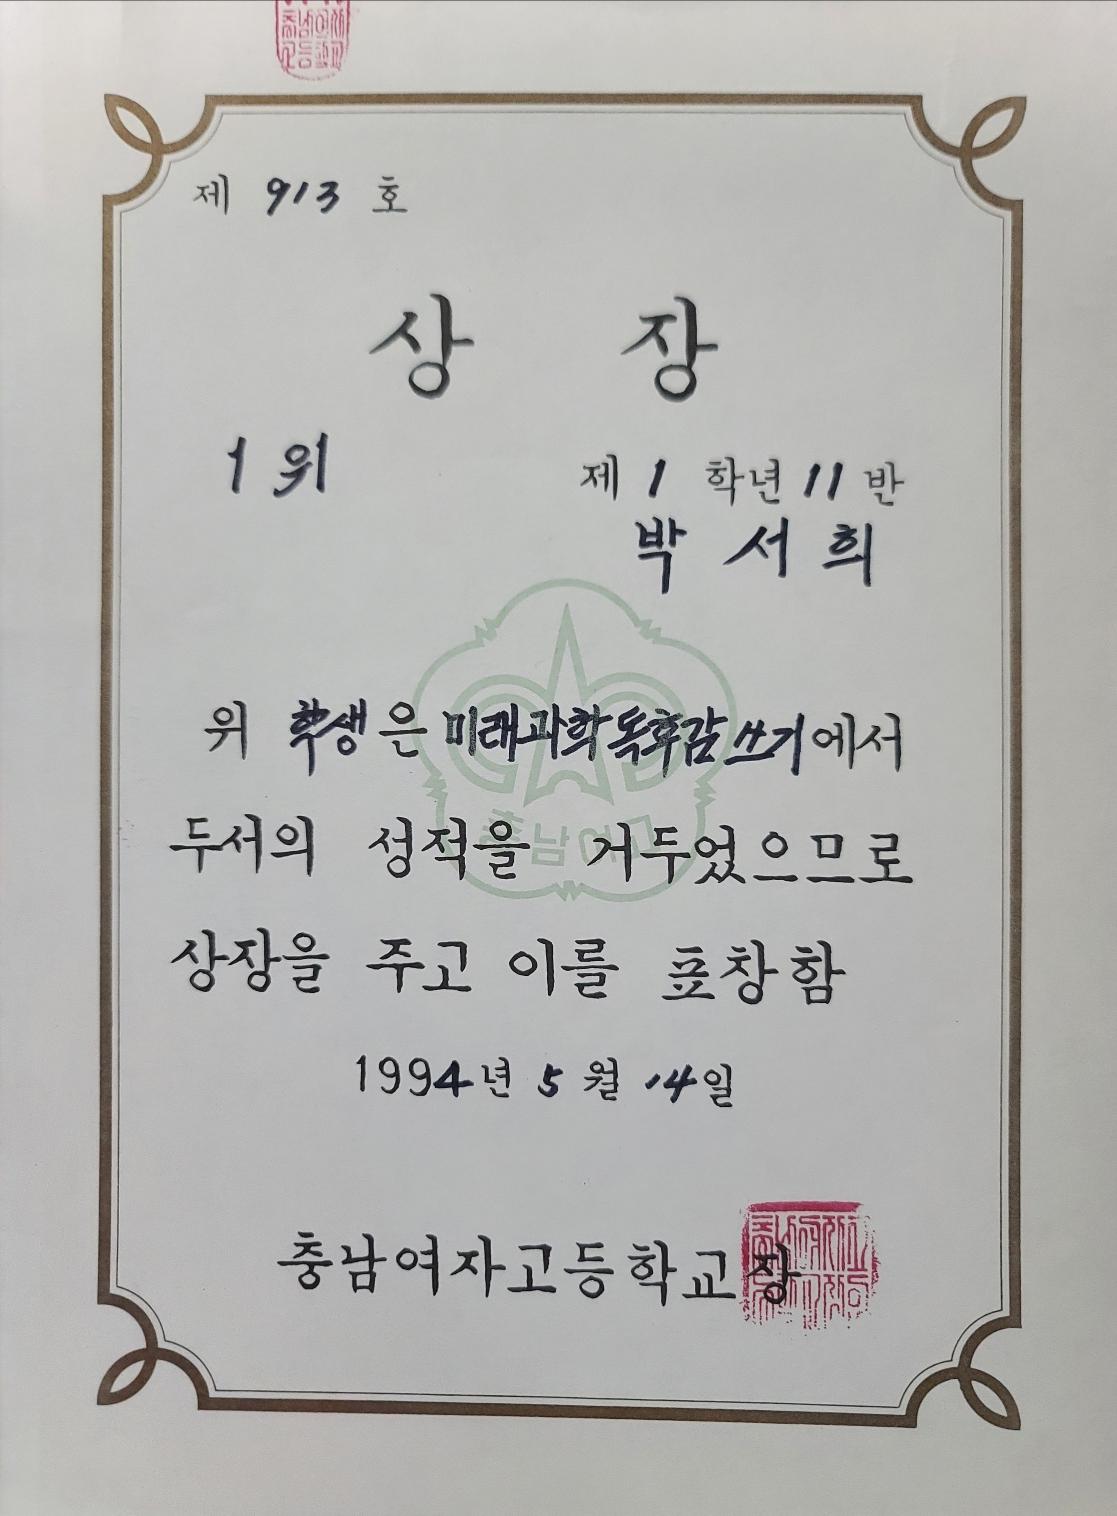 제 913 호
상 장
1위
제 1 학년 11 반
박 서 희
위 학생은 미래과학독후감쓰기에서
두서의 성적을 거두었으므로
상장을 주고 이를 표창함
충남여고
1994년 5월 14일
충남여자고등학교장